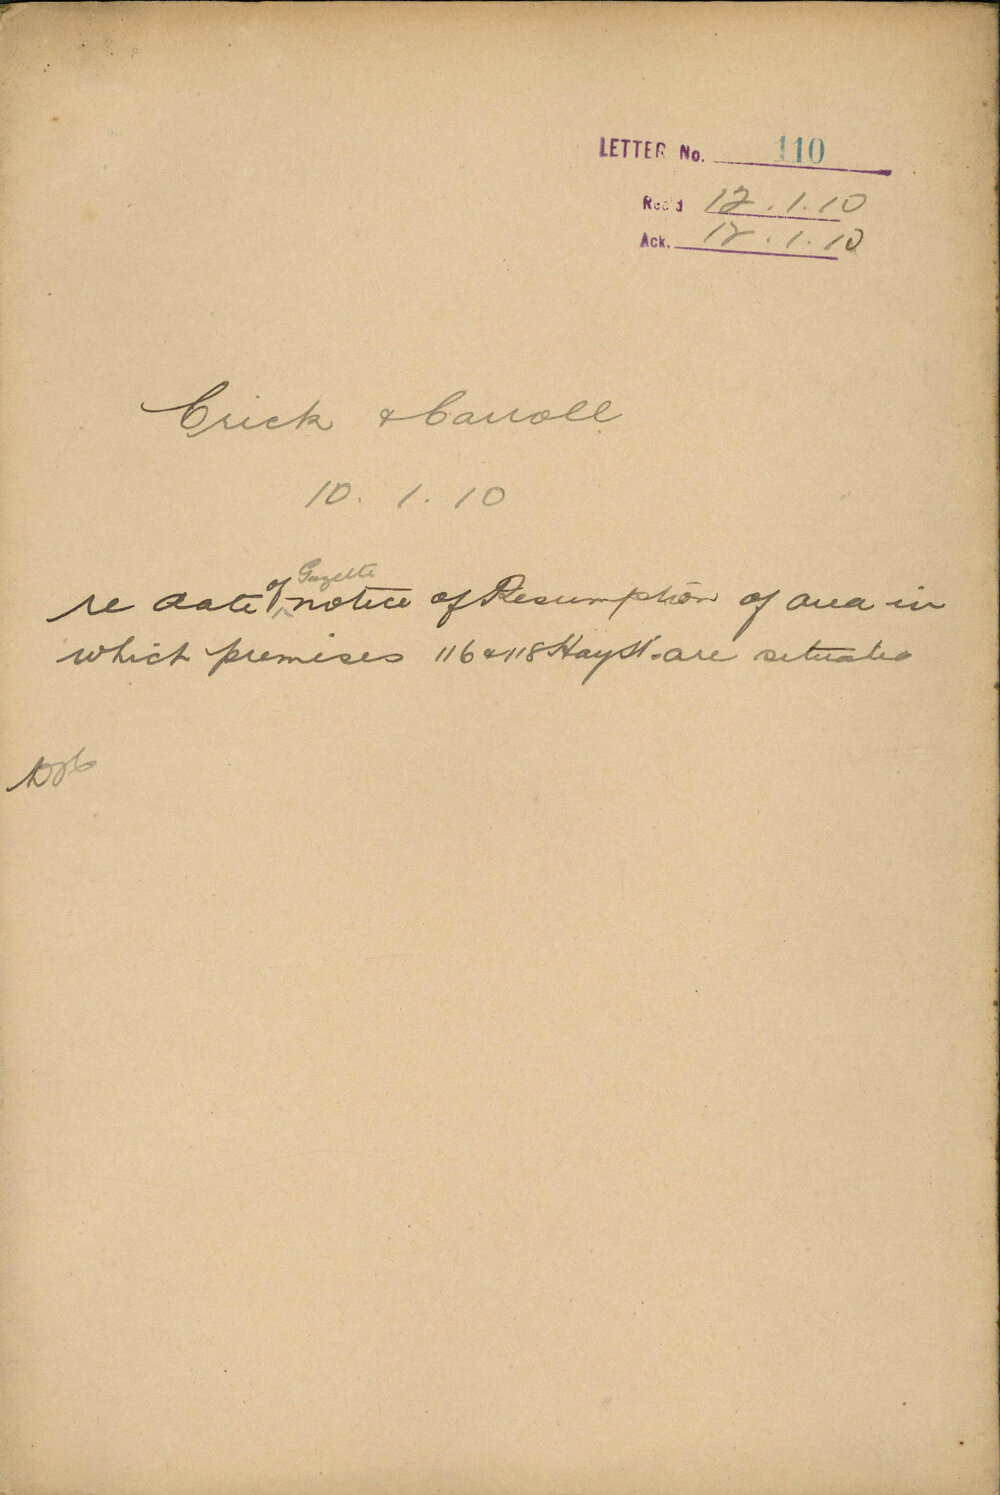 LETTER No. 110
Rec'd 12.1.10
Ack. 12.1.10
Crick & Carroll
10.1.10
re date of Gazette notice of Resumption of area in
which premises 116 & 118 Hay St. are situated